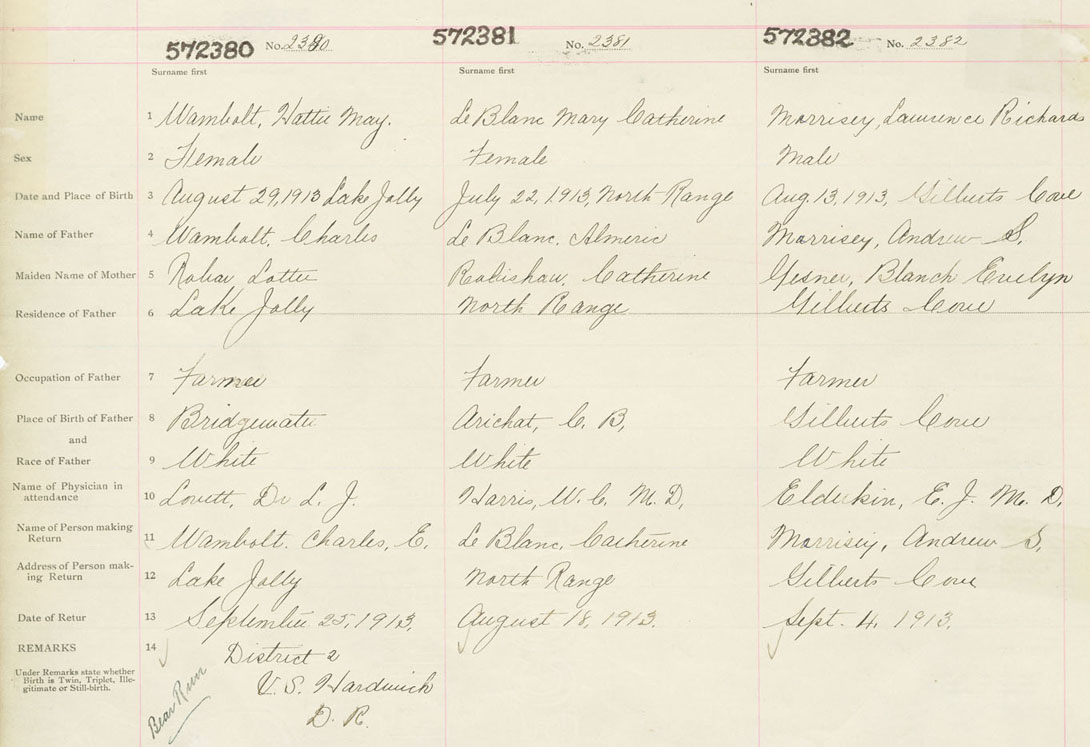 572380 No. 2380 572381 No. 2381 572382 No. 2382
Surname first Surname first Surname first
Name 1 Wambolt, Hattie May. Le Blanc Mary Catherine Morrisey, Lawrence Richards
Sex 2 Female Female Male
Date and Place of Birth 3 August 29, 1913 Lake Jolly July 22, 1913, North Range Aug. 13, 1913, Gilberts Cove
Name of Father 4 Wambolt, Charles Le Blanc, Almeric Morrisey, Andrew S.
Maiden Name of Mother 5 Lottie Robishaw, Catherine Gesner, Blanch Evelyn
Residence of Father 6 Lake Jolly North Range Gilberts Cove
Occupation of Father 7 Farmer Farmer Farmer
Place of Birth of Father 8 Bridgewater Arichat, C. B. Gilberts Cove
and
Race of Father 9 White White White
Name of Physician in
attendance 10 Lovett, Dr L. J. Harris, W. C. M. D. Elderkin, E. J. M. D.
Name of Person making
Return 11 Wambolt. Charles, E. Le Blanc, Catherine Morrisey, Andrew S.
Address of Person mak-
ing Return 12 Lake Jolly North Range Gilberts Cove
Date of Retur 13 September 25, 1913. August 18, 1913. Sept. 4, 1913.
REMARKS 14 District 2
Under Remarks state whether
Birth is Twin, Triplet, Ille-
gitimate or Still-birth.
V. S. Hardwick
D. R.
Bear River